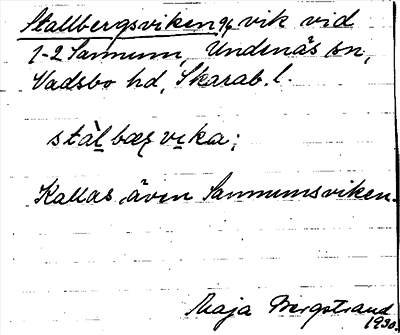 Stallbergsviken, vik vid
1-2 Sannum, Undenäs sn,
Vadsbo hd, Skarab. l.
stàlbærvika;
Kallas även Sannumsviken.
Maja Bergstrand
1930.